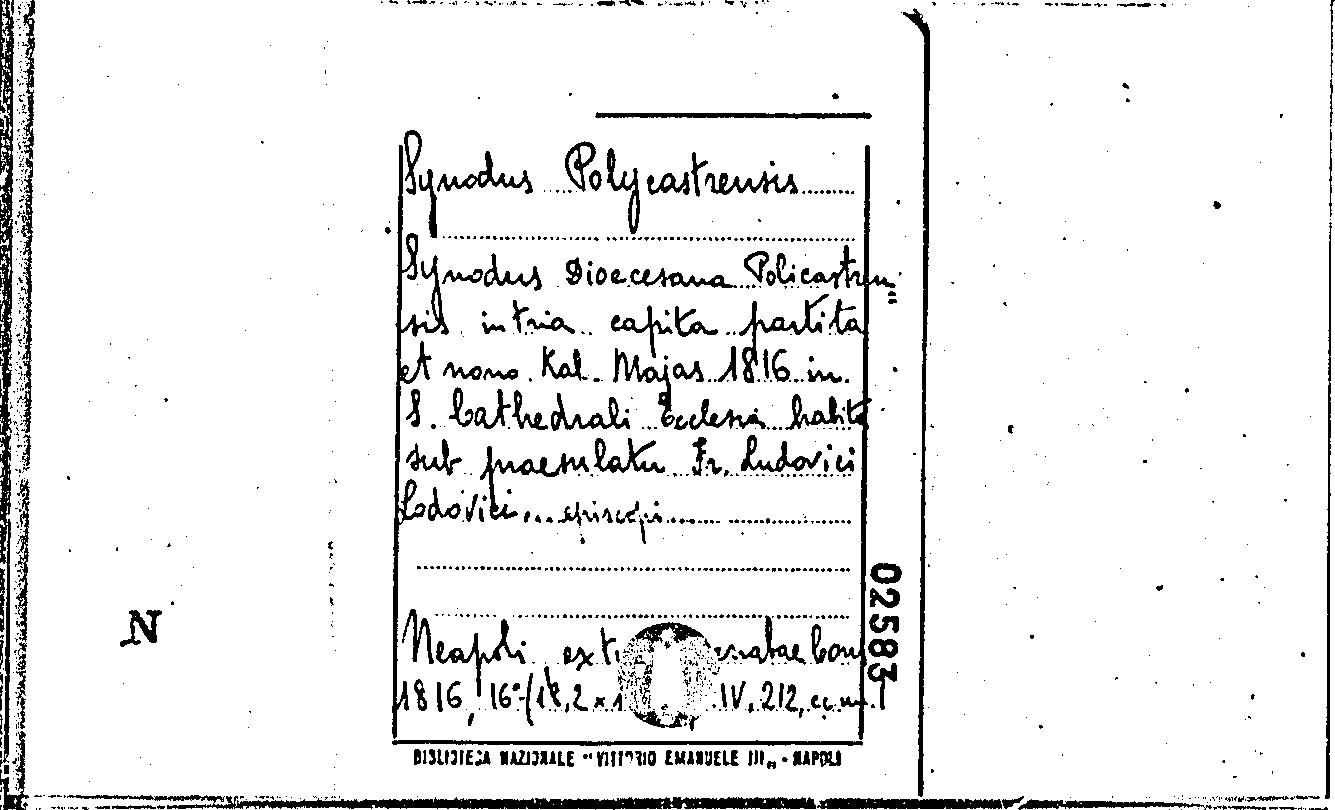 Synodus Polycastrensis
Synodus Dioecesana Policastren"
sis in tria capita partita
et nono Kal. Majas 1816 in
S. Cathedrali Ecclesia habita
sub praesulatu Fr. Ludovici
Lodovici... episcopi
Neapoli ex
1816, 16°(18,2 × 1 IV, 212,
BIBLIOTECA NAZIONALE "VITTORIO EMANUELE III" - NAPOLI
02583
N